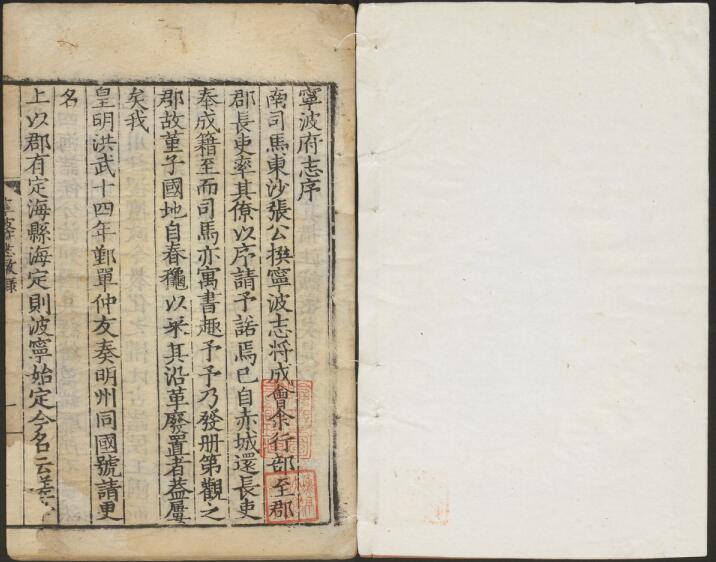 寧波府志序
南司馬東沙張公撰寧波志將成會余行部至郡
郡長吏率其僚以序請予諾焉已自赤城還長吏
奉成籍至而司馬亦寓書趣予予乃發册第觀之
郡故堇子國地自春龝以來其沿革廢置者葢屢
矣我
皇明洪武十四年鄞單仲友奏明州同國號請更
名
上以郡有定海縣海定則波寧始定今名云